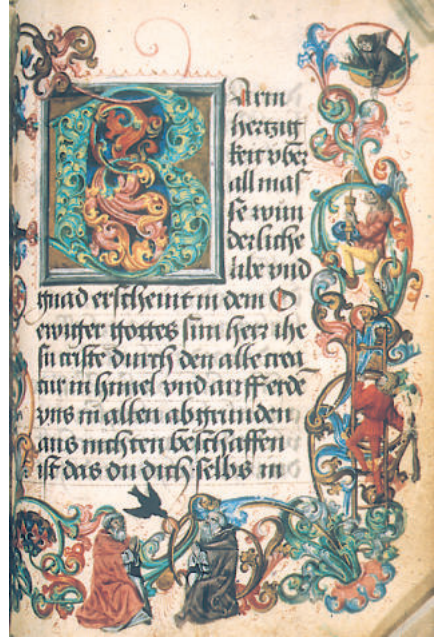 Barm
hertzig
keit vber
all mas
se wun
derliche
libe vnd
gnad erscheint in dem O
ewiger gottes sun herr ihe
su criste durch den alle crea
tur in hymel vnd auff erdē
vnd in allen abgrunden
aus nichten beschaffen
ist das du dich selbs in